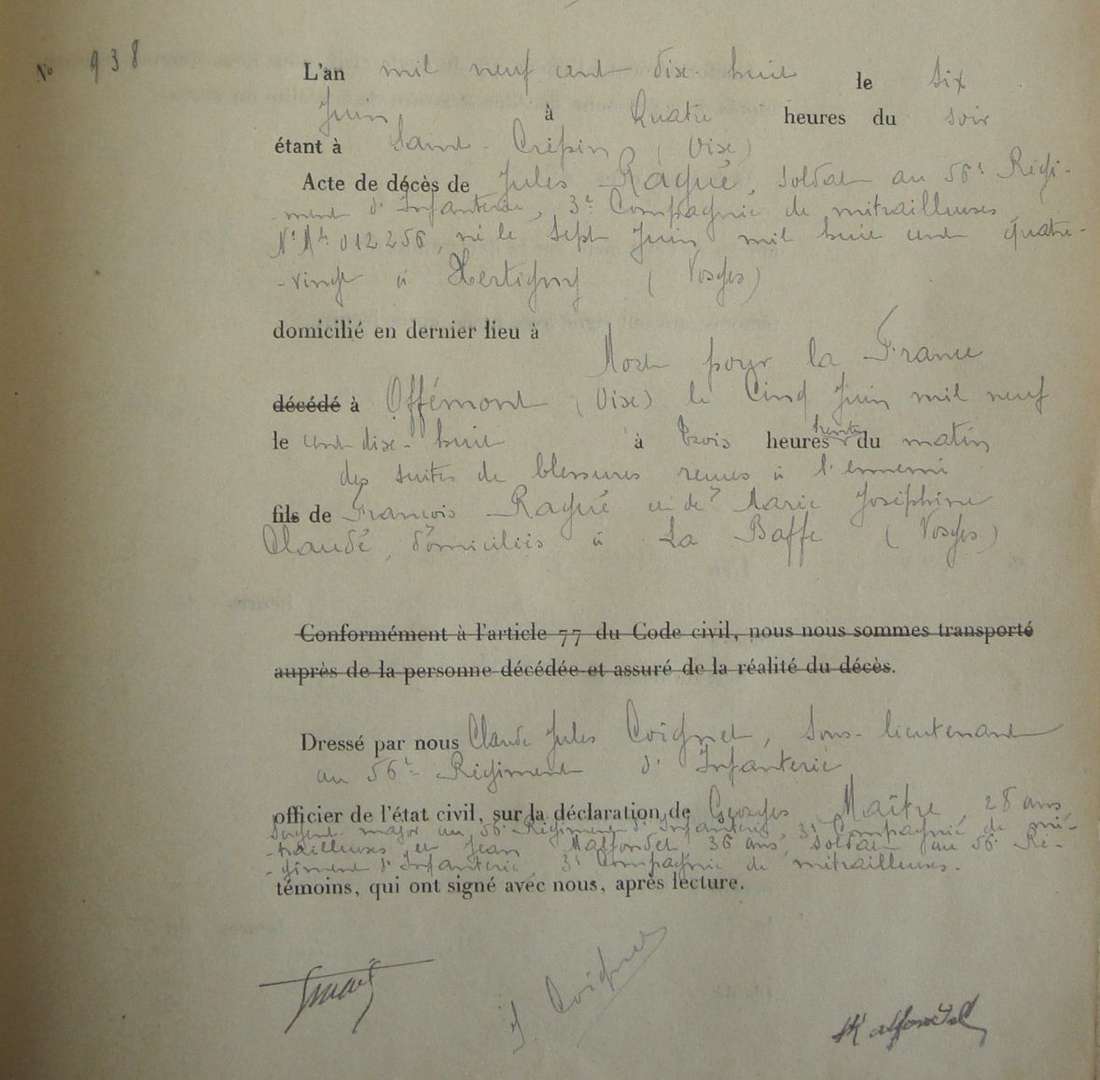 N° 938
L'an mil neuf cent dix-huit le six
Juin à Quatre heures du soir
étant à Saint-Crépin (Oise)
Acte de décès de Jules Ragué, soldat au 56e Régi-
-ment d'Infanterie, 3e Compagnie de mitrailleuses
N° Mle 012256, né le sept Juin mil huit cent quatre-
-vingt à Xertigny (Vosges)
domicilié en dernier lieu à
Mort pour la France
décédé à Offémont (Oise) le Cinq Juin mil neuf
le cent dix-huit à trois heures trente du matin
des suites de blessures reçues à l'ennemi
fils de François Ragué et de Marie Joséphine
Claudé, domiciliés à La Baffe (Vosges)
Conformément à l'article 77 du Code civil, nous nous sommes transporté
auprès de la personne décédée et assuré de la réalité du décès.
Dressé par nous Claude Jules Coignet, Sous-lieutenant
au 56e Régiment d'Infanterie
officier de l'état civil, sur la déclaration de Georges Maître, 28 ans
Sergent major au 56e Régiment d'Infanterie, 3e Compagnie de mi-
-trailleuses et Jean Malfondet, 36 ans, soldat au 56e Ré-
-giment d'Infanterie, 3e Compagnie de mitrailleuses.
témoins, qui ont signé avec nous, après lecture.
J Coignet
Malfondet